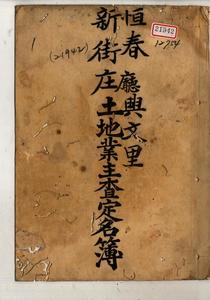 恒春廳興文里
新街庄土地業主查定名簿
21942
(21942)